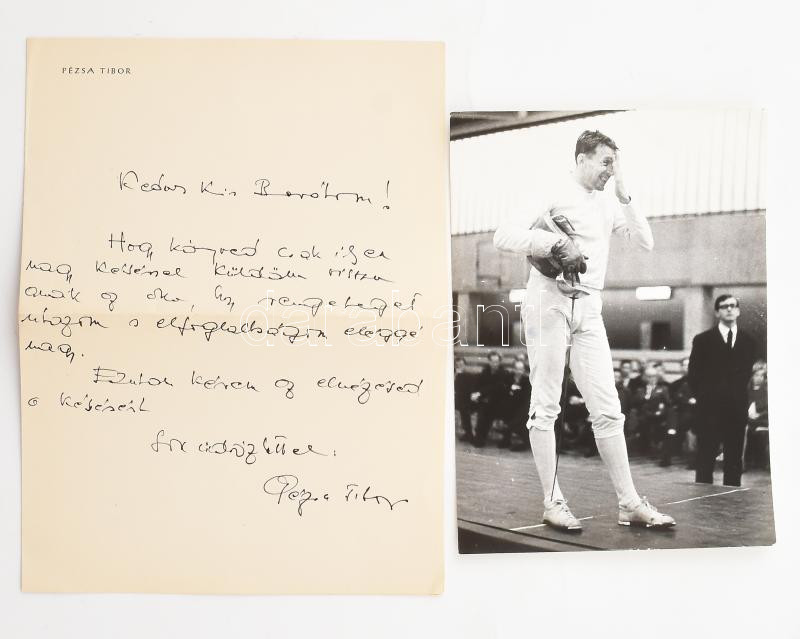 PÉZSA TIBOR
Kedves Kis Barátom!
Hogy könyved csak ilyen
nagy késéssel küldöm vissza
annak az oka, hogy rengeteget
utazom s elfoglaltságom eléggé
nagy.
Ezúton kérem az elnézésed
a késésért
Sok üdvözlettel.
Pézsa Tibor
darabanth